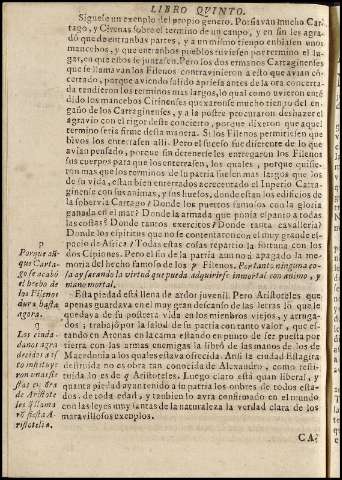 LIBRO QVINTO.
Siguese un exemplo del propio genero. Porfiavan mucho Car-
tago, y Cirenas sobre el termino de un campo, y en fin les agra-
dó que de entranbas partes, y a un mismo tienpo enbiasen unos
mancebos, y que entranbos pueblos tuviesen por termino el lu-
gar, en que estos se juntasen. Pero los dos ermanos Cartaginenses
que se llamavan los Filenos contravinieron a esto que avian cō-
certado, porque aviendo salido apriesa antes de la ora concerta-
da tendieron los terminos mas largos, lo qual como uviesen entē
dido los mancebos Cirinenses quexaronse mucho tienpo del en-
gaño de los Cartaginenses, y a la postre procuraron deshazer el
agravio con el rigor deste concierto, porque dixeron que aquel
termino seria firme desta manera. Si los Filenos permitiesen que
bivos los enterrasen alli. Pero el suceso fue diferente de lo que
avian pensado, porque sin detenerse les entregaron los Filenos
sus cuerpos para que los enterrasen, los quales, porque quisie-
ron mas que los terminos de su patria fuesen mas largos que los
de su vida, estan bien enterrados acrecentado el Inperio Cartagi-
nense con sus animas, y sus huesos, donde estan los edificios de
la sobervia Cartago? Donde los puertos famosos con la gloria
ganada en el mar? Donde la armada que ponia espanto a todas
las costas? Donde tantos exercitos? Donde tanta cavalleria?
Donde los espiritus que no se contentaron con el muy grande es-
pacio de Africa? Todas estas cosas repartio la fortuna con los
dos Cipiones. Pero el fin de la patria aun no á apagado la me-
moria del hecho famoso de los p Filenos. Por tanto ninguna co-
sa ay sacando la virtud que pueda adquirirse inmortal con animo, y
mano mortal.
p
Porque aū-
que Carta-
go se acabó
el hecho de
los Filenos
dura hasta
agora.
Esta piedad está llena de ardor juvenil. Pero Aristoteles que
apenas guardava en el muy gran descanso de las letras lo que le
quedava de su postrera vida en los mienbros viejos, y arruga-
dos, trabajó por la salud de su patria con tanto valor, que es-
tando en Atenas en la cama estando en punto de ser puesta por
tierra con las armas enemigas la libró de las manos de los de
Macedonia a los quales estava ofrecida. Ansi la ciudad Estagira
destruida no es obra tan conocida de Alexandro, como resti-
tuida lo es de q Aristoteles. Luego claro está quan liberal, y
quanta piedad ayan tenido a su patria los onbres de todos esta-
dos, de toda edad, y tanbien lo avra confirmado en el mundo
con las leyes muy santas de la naturaleza la verdad clara de los
maravillosos exemplos.
q
Los ciuda-
danos agra
decidos a es
to instituye
ron unas fie
stas en onra
de Aristote
les
ristotelia.
CA-